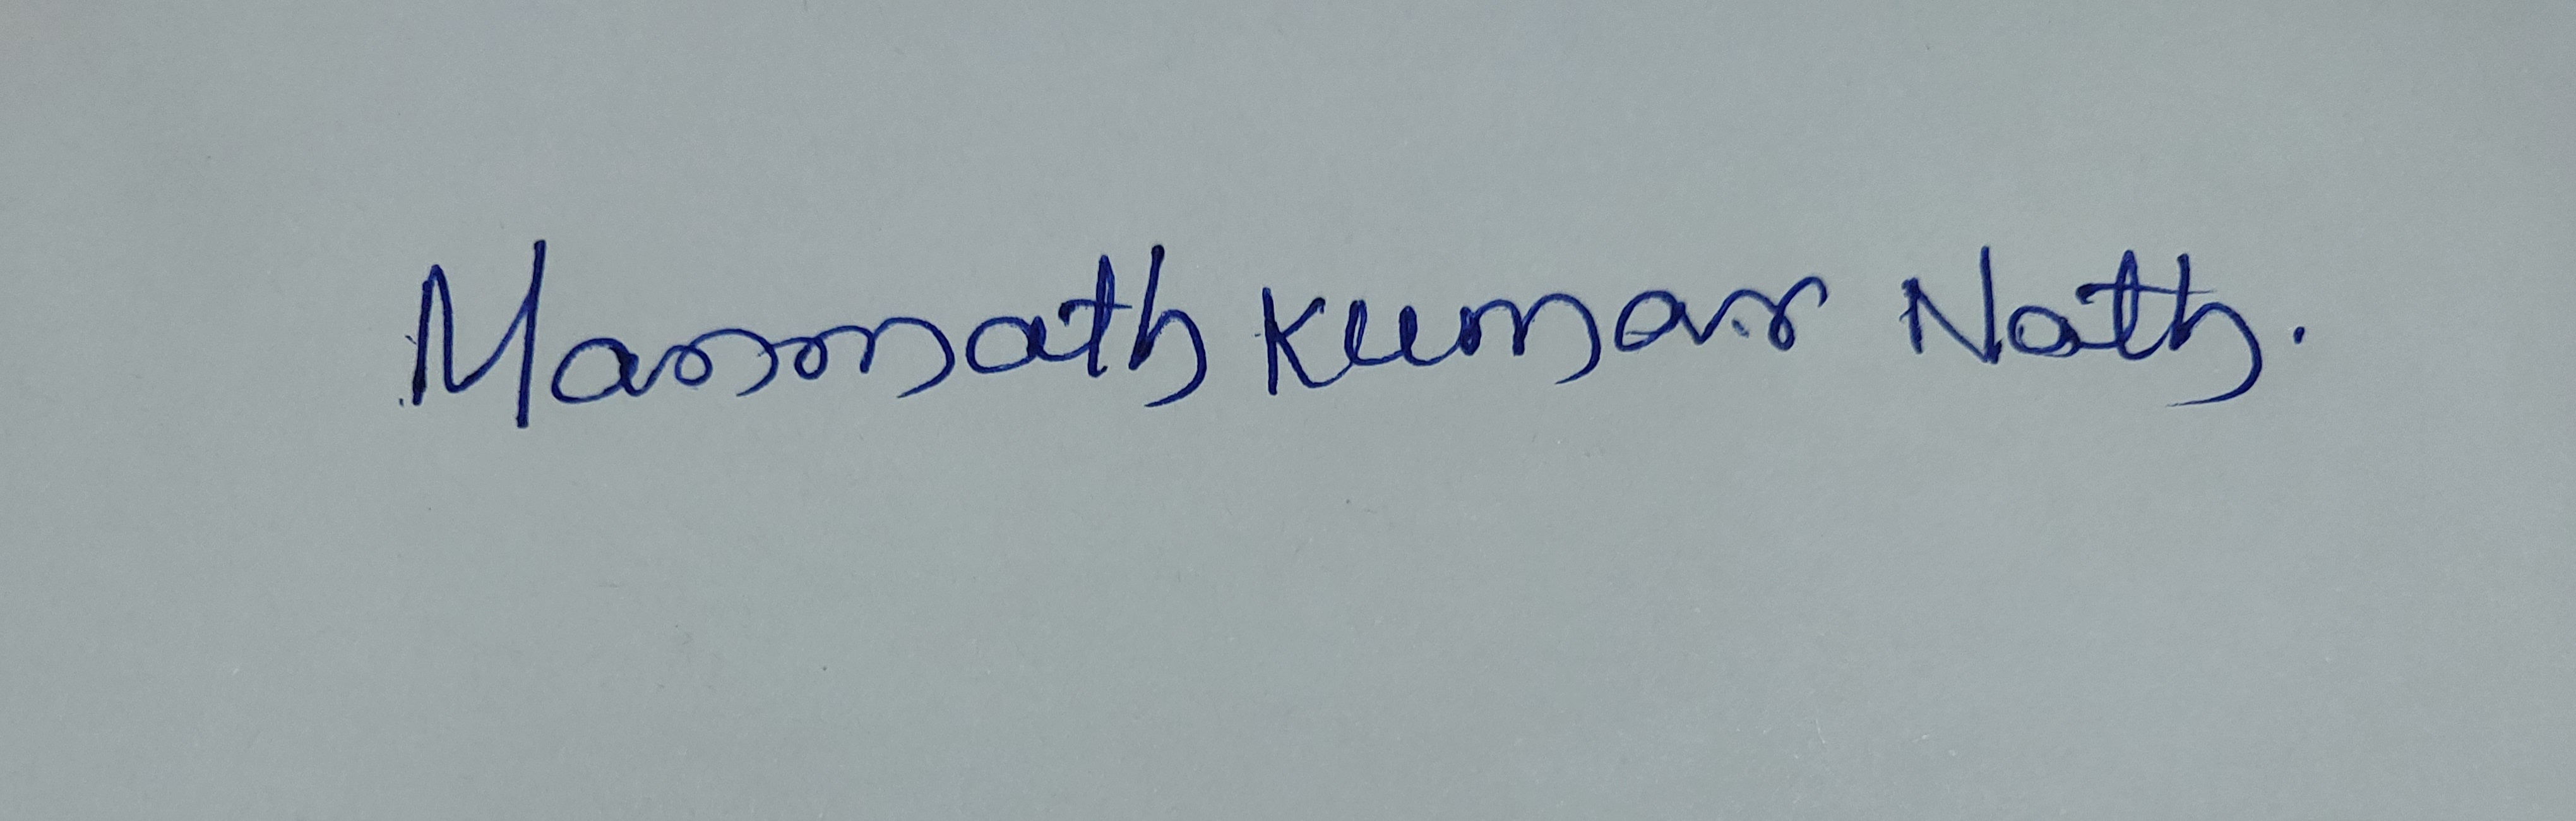 Manmath Kumar Nath.